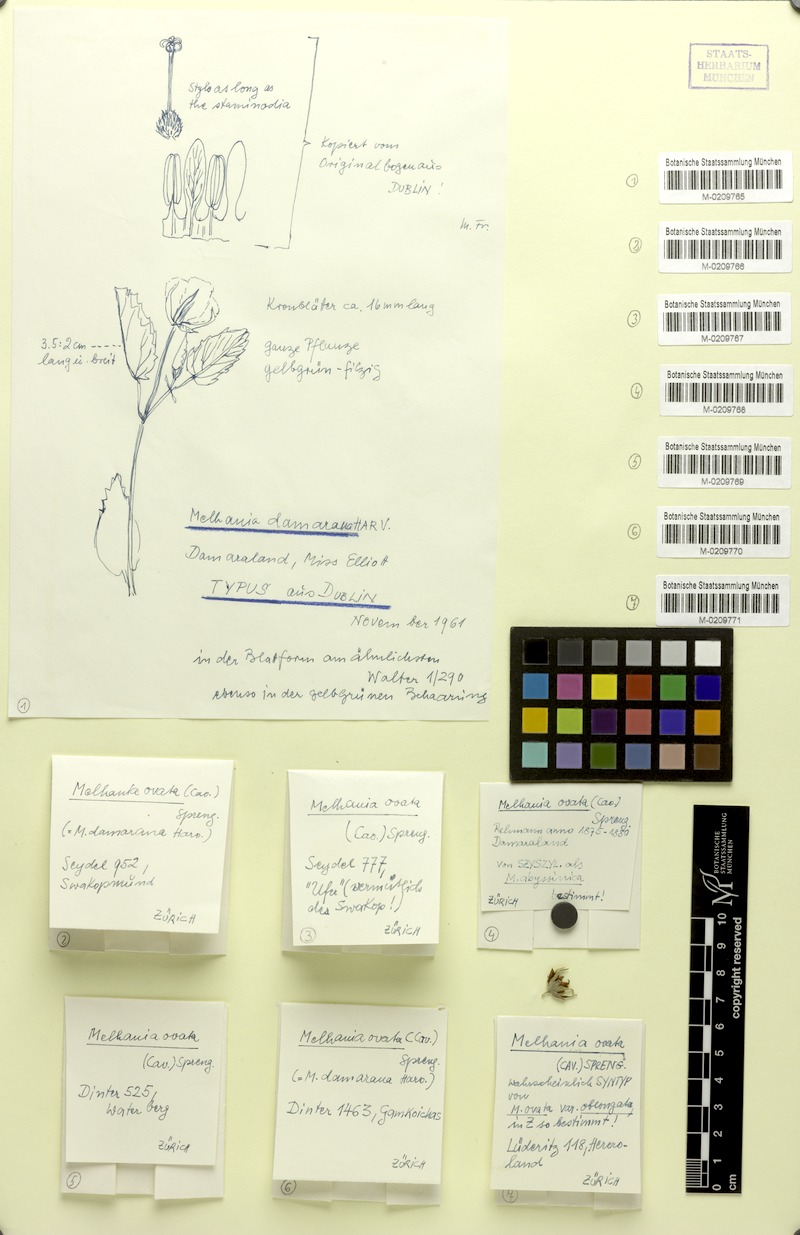 STAATS-
HERBARIUM
MÜNCHEN
Style as long as
the staminodia
Kopiert vom
Originalbogen aus
DUBLIN!
M. Fr.
Kronblätter ca. 16 mm lang
3.5:2 cm ----
lang u. breit
ganze Pflanze
gelbgrün-filzig
Melhania damarana HARV.
Damaraland, Miss Elliott
TYPUS aus DUBLIN
November 1961
in der Blattform am ähnlichsten
Walter 1/290
ebenso in der gelbgrünen Behaarung
1
1
Botanische Staatssammlung München
M-0209765
2
Botanische Staatssammlung München
M-0209766
3
Botanische Staatssammlung München
M-0209767
4
Botanische Staatssammlung München
M-0209768
5
Botanische Staatssammlung München
M-0209769
6
Botanische Staatssammlung München
M-0209770
7
Botanische Staatssammlung München
M-0209771
Melhania ovata (Cav.)
Spreng.
(= M. damarana Harv.)
Seydel 952,
Swakopmund
ZÜRICH
2
Melhania ovata
(Cav.) Spreng.
Seydel 777,
"Ufer" (vermutlich
des Swakop!)
ZÜRICH
3
Melhania ovata (Cav.)
Spreng.
Rehmann anno 1875-1880
Damaraland
von SZYSZYL. als
M. abyssinica
bestimmt!
ZÜRICH
4
Melhania ovata
(Cav.) Spreng.
Dinter 525,
Waterberg
ZÜRICH
5
Melhania ovata (Cav.)
Spreng.
(= M. damarana Harv.)
Dinter 1463, Gamkoichas
ZÜRICH
6
Melhania ovata
(CAV.) SPRENG.
wahrscheinlich SYNTYP
von
M. ovata var. oblongata,
in Z so bestimmt!
Lüderitz 118, Herero-
land
ZÜRICH
7
BOTANISCHE
STAATSSAMMLUNG
MÜNCHEN
copyright reserved
0 1 2 3 4 5 6 7 8 9 10
cm